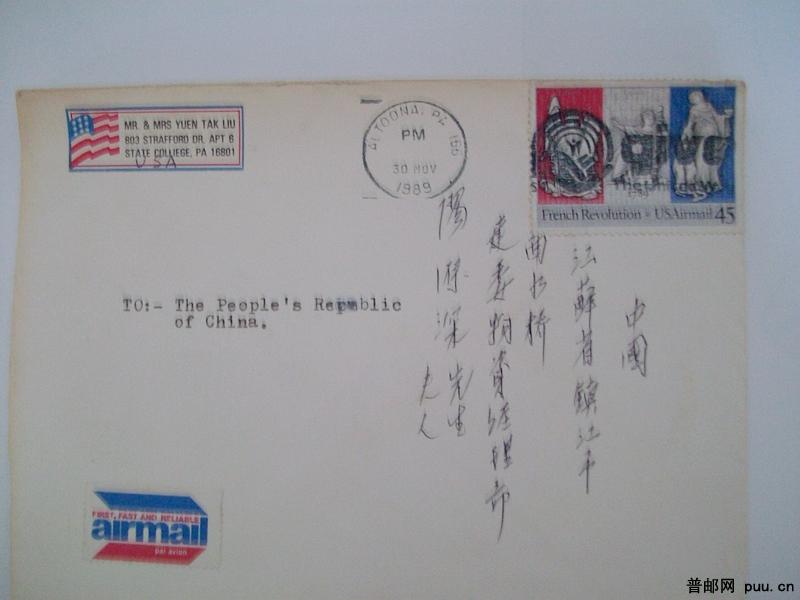 MR. & MRS YUEN TAK LIU
803 STRAFFORD DR. APT 6
STATE COLLEGE, PA 16801
USA
ALTOONA, PA 166
PM
30 NOV
1989
French Revolution USAirmail 45
TO:- The People's Republic
of China.
中國
江蘇省鎮江市
建委物資經理部
深先生
夫人
FIRST, FAST AND RELIABLE
airmail
par avion
普邮网 puu.cn